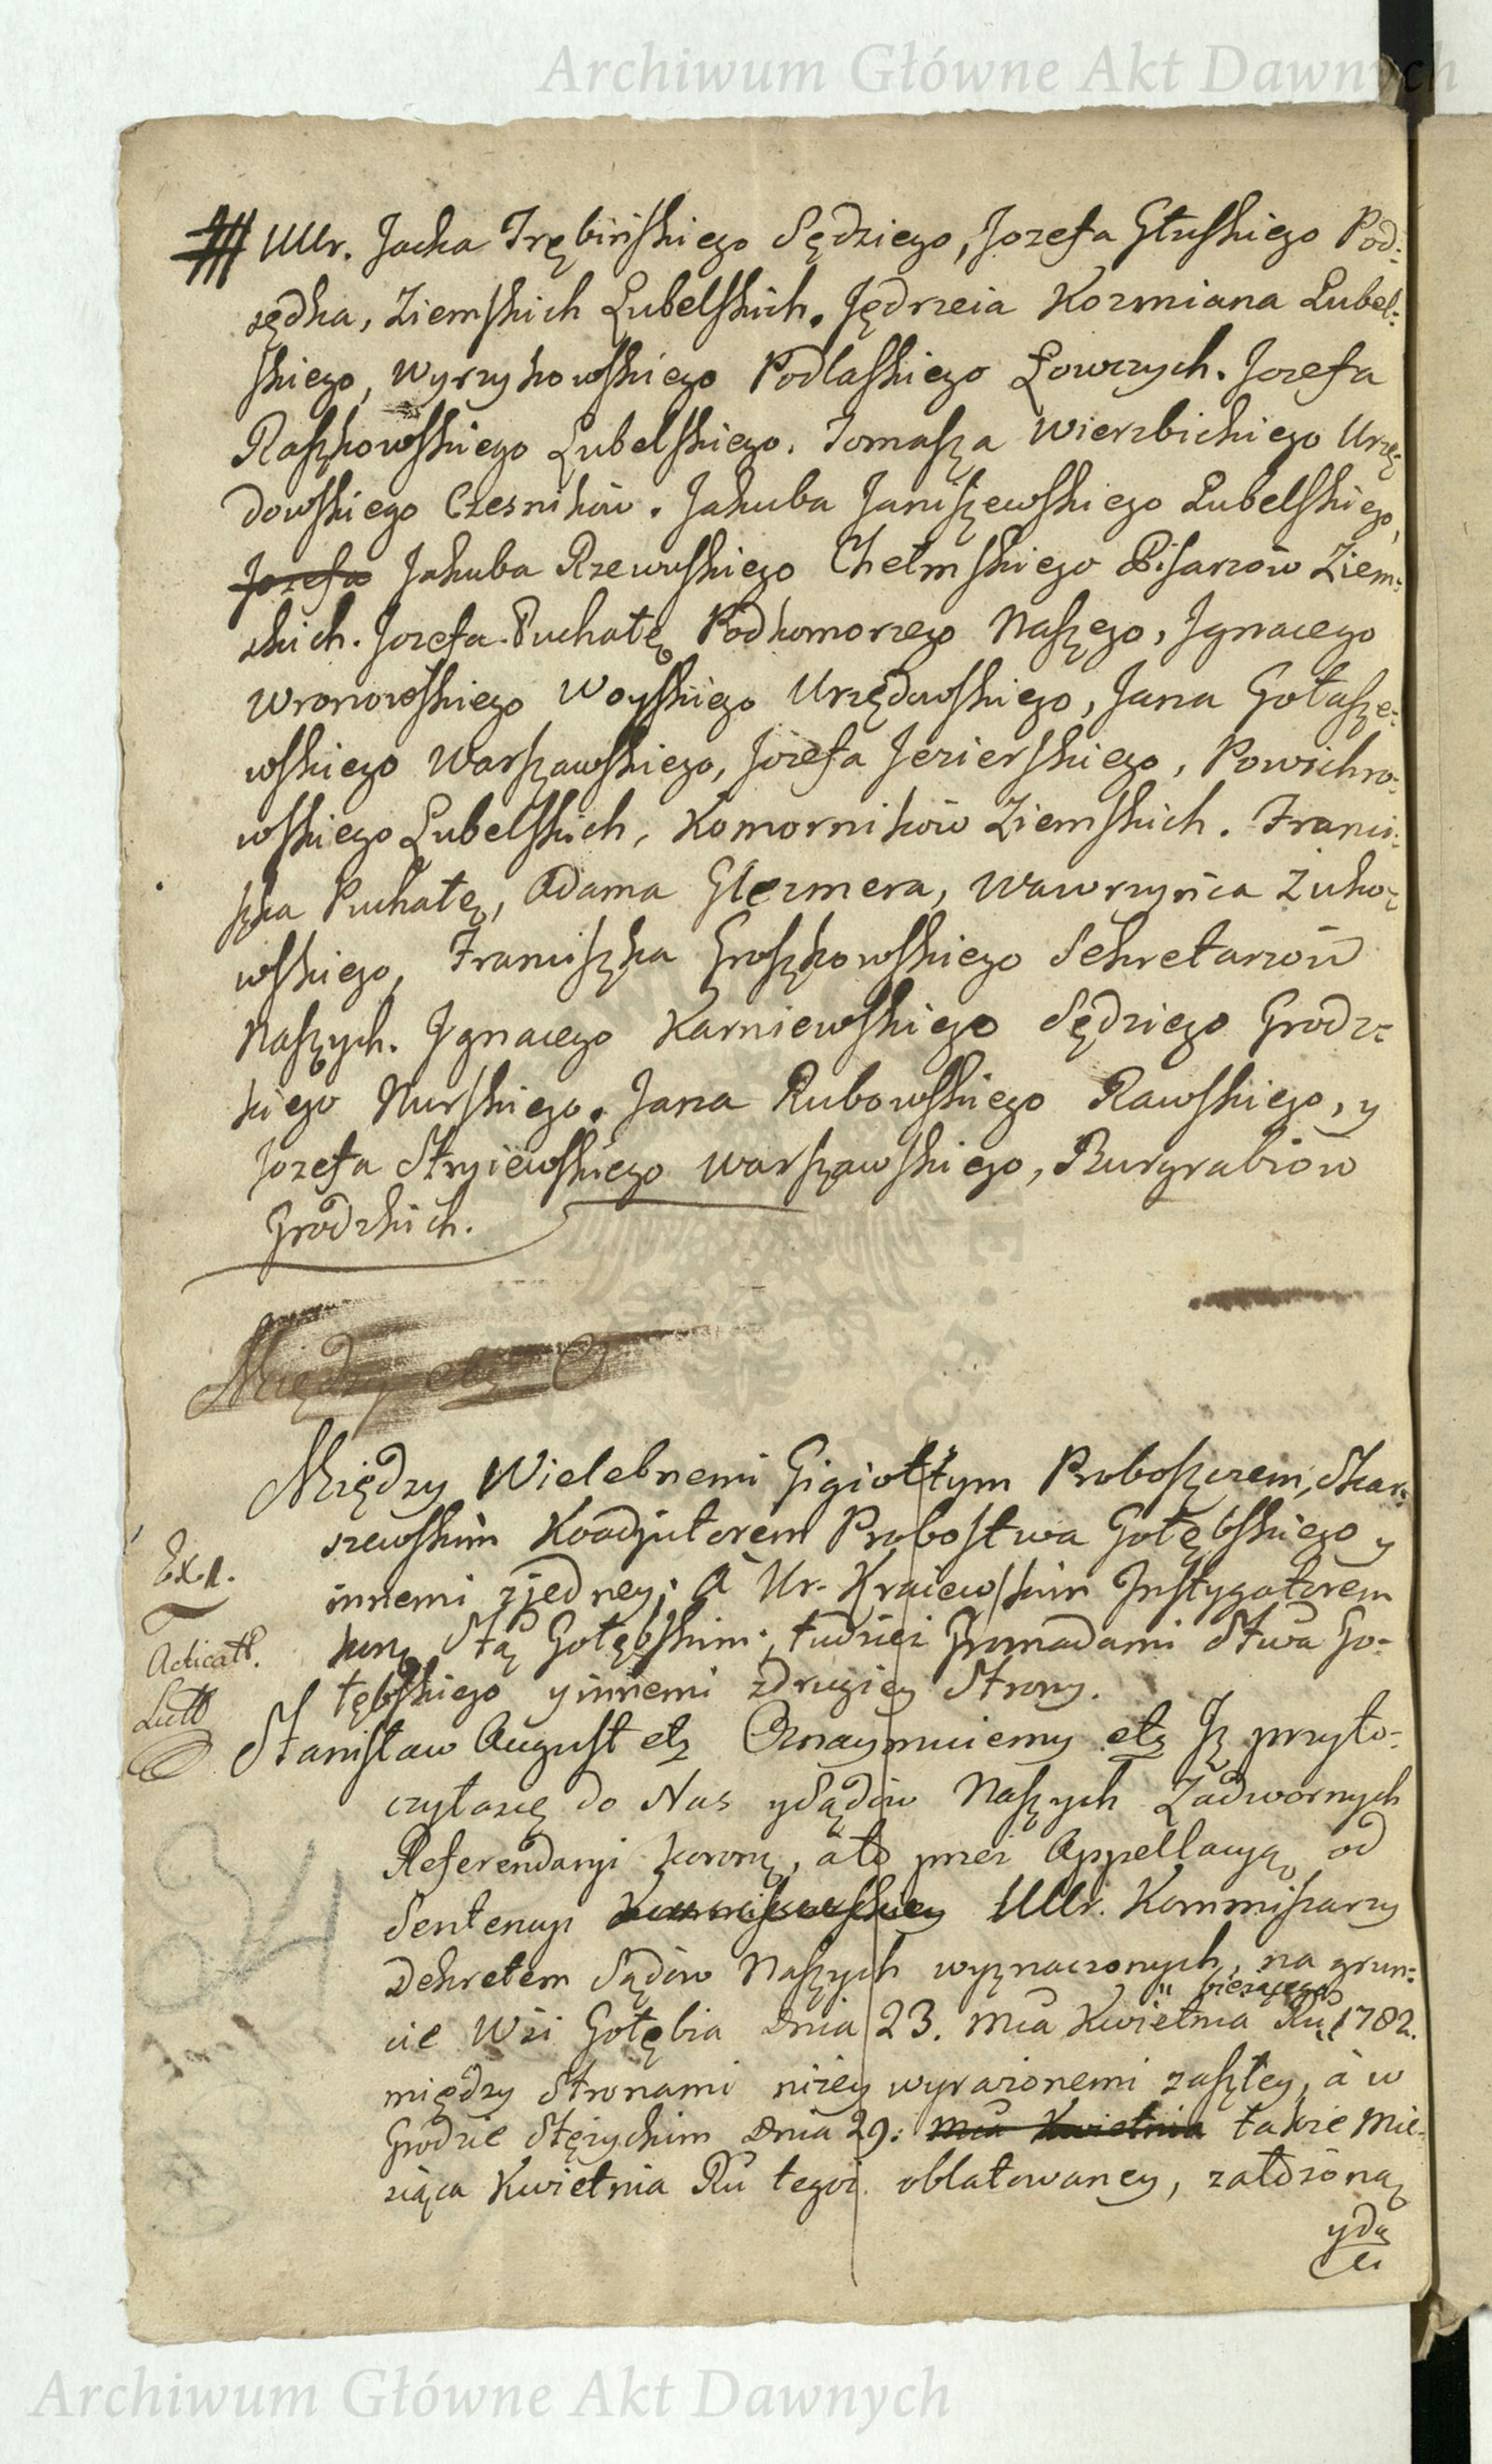 Archiwum Główne Akt Dawnych
UUr. Jacka Trębińskiego Sędziego, Jozefa Głuskiego Pod:
sędka, Ziemskich Lubelskich. Jędrzeia Kozmiana Lubel:
skiego, Wyrzykowskiego Podlaskiego Łowczych. Jozefa
Raszkowskiego Lubelskiego. Tomasza Wierzbickiego Urzę:
dowskiego Czesnikow. Jakuba Janiszewskiego Lubelskiego,
Jozefa Jakuba Rzewuskiego Chełmskiego Pisarzow Ziem:
skich. Jozefa Puchałę Podkomorzego Naszego, Jgnacego
Wronowskiego Woyskiego Urzędowskiego, Jana Gołasze:
wskiego Warszawskiego, Jozefa Jezierskiego, Powichro:
wskiego Lubelskich, Komornikow Ziemskich. Franci:
szka Puchałę, Adama Glezmera, Wawrzyńca Zuko:
wskiego, Franciszka Groszkowskiego Sekretarzow
Naszych. Jgnacego Karniewskiego Sędziego Grodz:
kiego Nurskiego. Jana Rubowskiego Rawskiego, y
Jozefa Stryiewskiego Warszawskiego, Burgrabiow
Grodzkich.
Między etz
Między Wielebnemi Gigiołtym Proboszczem, Skar:
szewskim Koadjutorem Probostwa Gołębskiego y
Ex 1.
innemi zjedney; à Ur. Kraiewskim Jnstygatorem
Acticatt.
kornę Sttą Gołębskim; tudziez Gromadami Sttwa Go:
Lutt
łębskiego y innemi zdrugiey Strony.
Stanisław August etz Oznaymuiemy etz Jz przyto:
czyłasię do Nas ySądow Naszych Zadwornych
Referendaryi korony, ato przez Appellacyą od
Sentencyi UUr. Kommissarzy
Dekretem Sądow Naszych wyznaczonych, na grun:
bieżącego
cie Wsi Gołębia dnia 23. mca Kwietnia Ru 1782.
między Stronami niżey wyrażonemi zaszłey, à w
Grodzie Stężyckim dnia 29. mca Kwietnia takze Mie:
siąca Kwietnia Ru tegoż oblatowaney, załozoną
ydą
Archiwum Główne Akt Dawnych